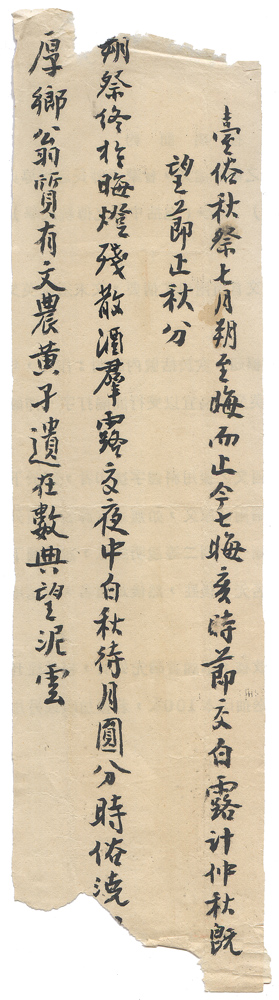 臺俗秋祭七月朔至晦而止今七晦亥時節交白露計仲秋既
望節止秋分
朔祭終於晦燈殘散酒羣露交夜中白秋待月圓分時俗澆
厚鄉翁質有文農黃子遺在數典望泥雲